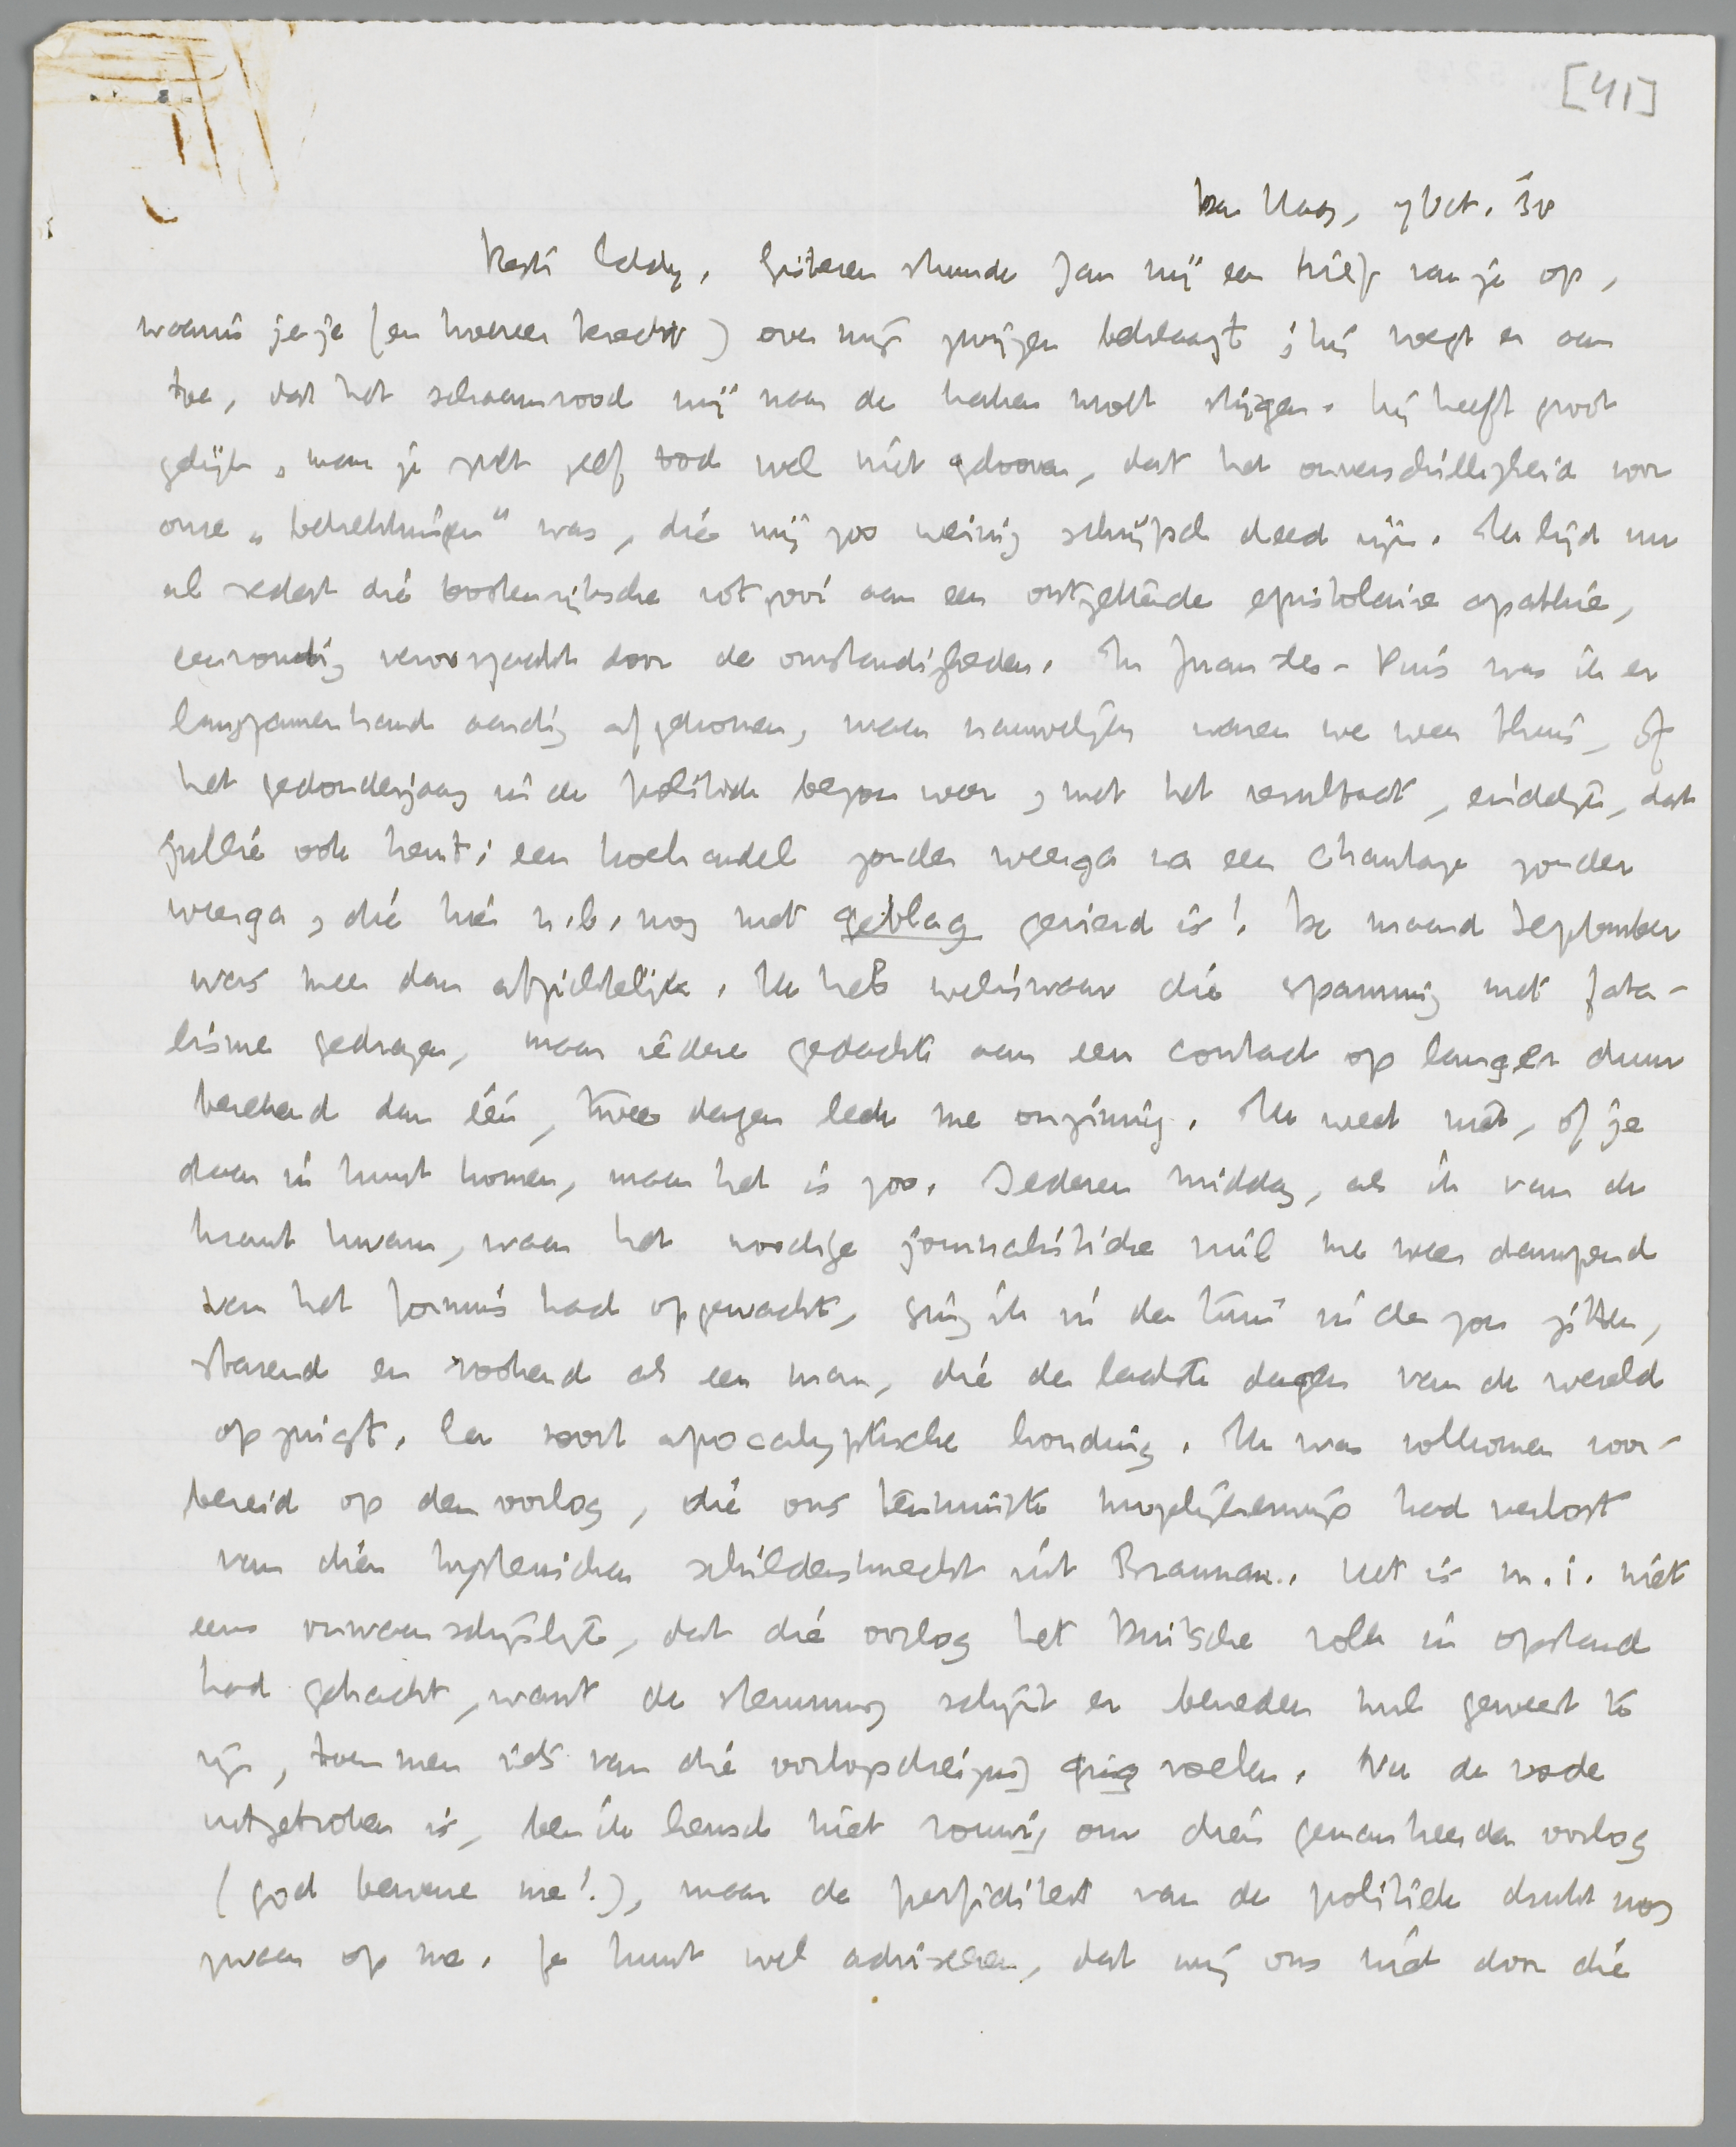 [41]
Den Haag, 7 Oct. '38
Beste Eddy, Gisteren stuurde Jan mij een brief van je op,
waarin je je (en hoezeer terecht) over mijn zwijgen beklaagt; hij voegt er aan
toe, dat het schaamrood mij naar de kaken moest stijgen. Hij heeft groot
gelijk, maar je zult zelf toch wel niet gelooven, dat het onverschilligheid voor
onze „betrekkingen" was, die mij zoo weinig schrijfsch deed zijn. Ik lijd nu
al sedert die Oostenrijksche rotzooi aan een ontzettende epistolaire apathie,
eenvoudig veroorzaakt door de omstandigheden. In Juan-les-Pins was ik er
langzamerhand aardig afgekomen, maar nauwelijks waren we weer thuis, of
het gedonderjaag in de politiek begon weer, met het resultaat, eindelijk, dat
jullie ook kent: een koehandel zonder weerga na een chantage zonder
weerga, die hier n.b. nog met gevlag gevierd is! De maand September
was meer dan afzichtelijk. Ik heb weliswaar die spanning met fata-
lisme gedragen, maar iedere gedachte aan een contact op langer duur
berekend dan één, twee dagen leek me onzinnig. Ik weet niet, of je
daar in kunt komen, maar het is zoo. Iederen middag, als ik van de
krant kwam, waar het noodige journalistieke vuil me weer dampend
van het fornuis had opgewacht, ging ik in den tuin in de zon zitten,
starend en rookend als een man, die de laatste dagen van de wereld
opzuigt. Een soort apocalyptische houding. Ik was volkomen voor-
bereid op den oorlog, die ons tenminste mogelijkerwijs had verlost
van dien hysterischen schildersknecht uit Braunau. Het is m.i. niet
eens onwaarschijnlijk, dat die oorlog het Duitsche volk in opstand
had gebracht, want de stemming schijnt er beneden nul geweest te
zijn, toen men iets van die oorlogsdreiging ging voelen. Nu de vrede
uitgebroken is, ben ik heusch niet rouwig om dien gemankeerden oorlog
(god beware me!), maar de perfiditeit van de politiek drukt nog
zwaar op me. Je kunt wel adviseeren, dat wij ons niet door die